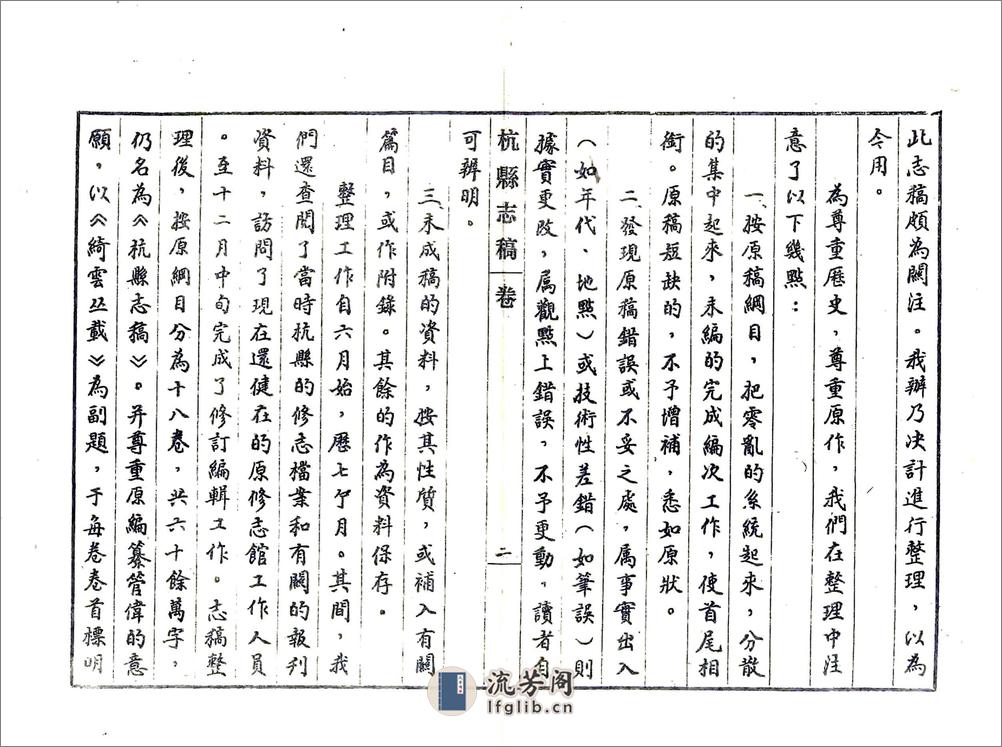 此志稿頗為關注。我辦乃决計進行整理，以為
今用。
為尊重歷史，尊重原作，我們在整理中注
意了以下幾點：
一、按原稿綱目，把零亂的系統起來，分散
的集中起來，未編的完成編次工作，使首尾相
銜。原稿短缺的，不予增補，悉如原狀。
二、發現原稿錯誤或不妥之處，属事實出入
（如年代、地點）或技術性差錯（如筆誤）則
據實更改，属觀點上錯誤，不予更動，讀者自
可辨明。
杭縣志稿 卷 二
三、未成稿的資料，按其性質，或補入有關
篇目，或作附錄。其餘的作為資料保存。
整理工作自六月始，歷七个月。其間，我
們還查閱了當時杭縣的修志檔案和有關的報刊
資料，訪問了現在還健在的原修志館工作人員
。至十二月中旬完成了修訂編輯工作。志稿整
理後，按原綱目分為十八卷，共六十餘萬字，
仍名為《杭縣志稿》。并尊重原編纂管偉的意
願，以《綺雲丛載》為副題，于每卷卷首標明
流芳阁
lfglib.cn